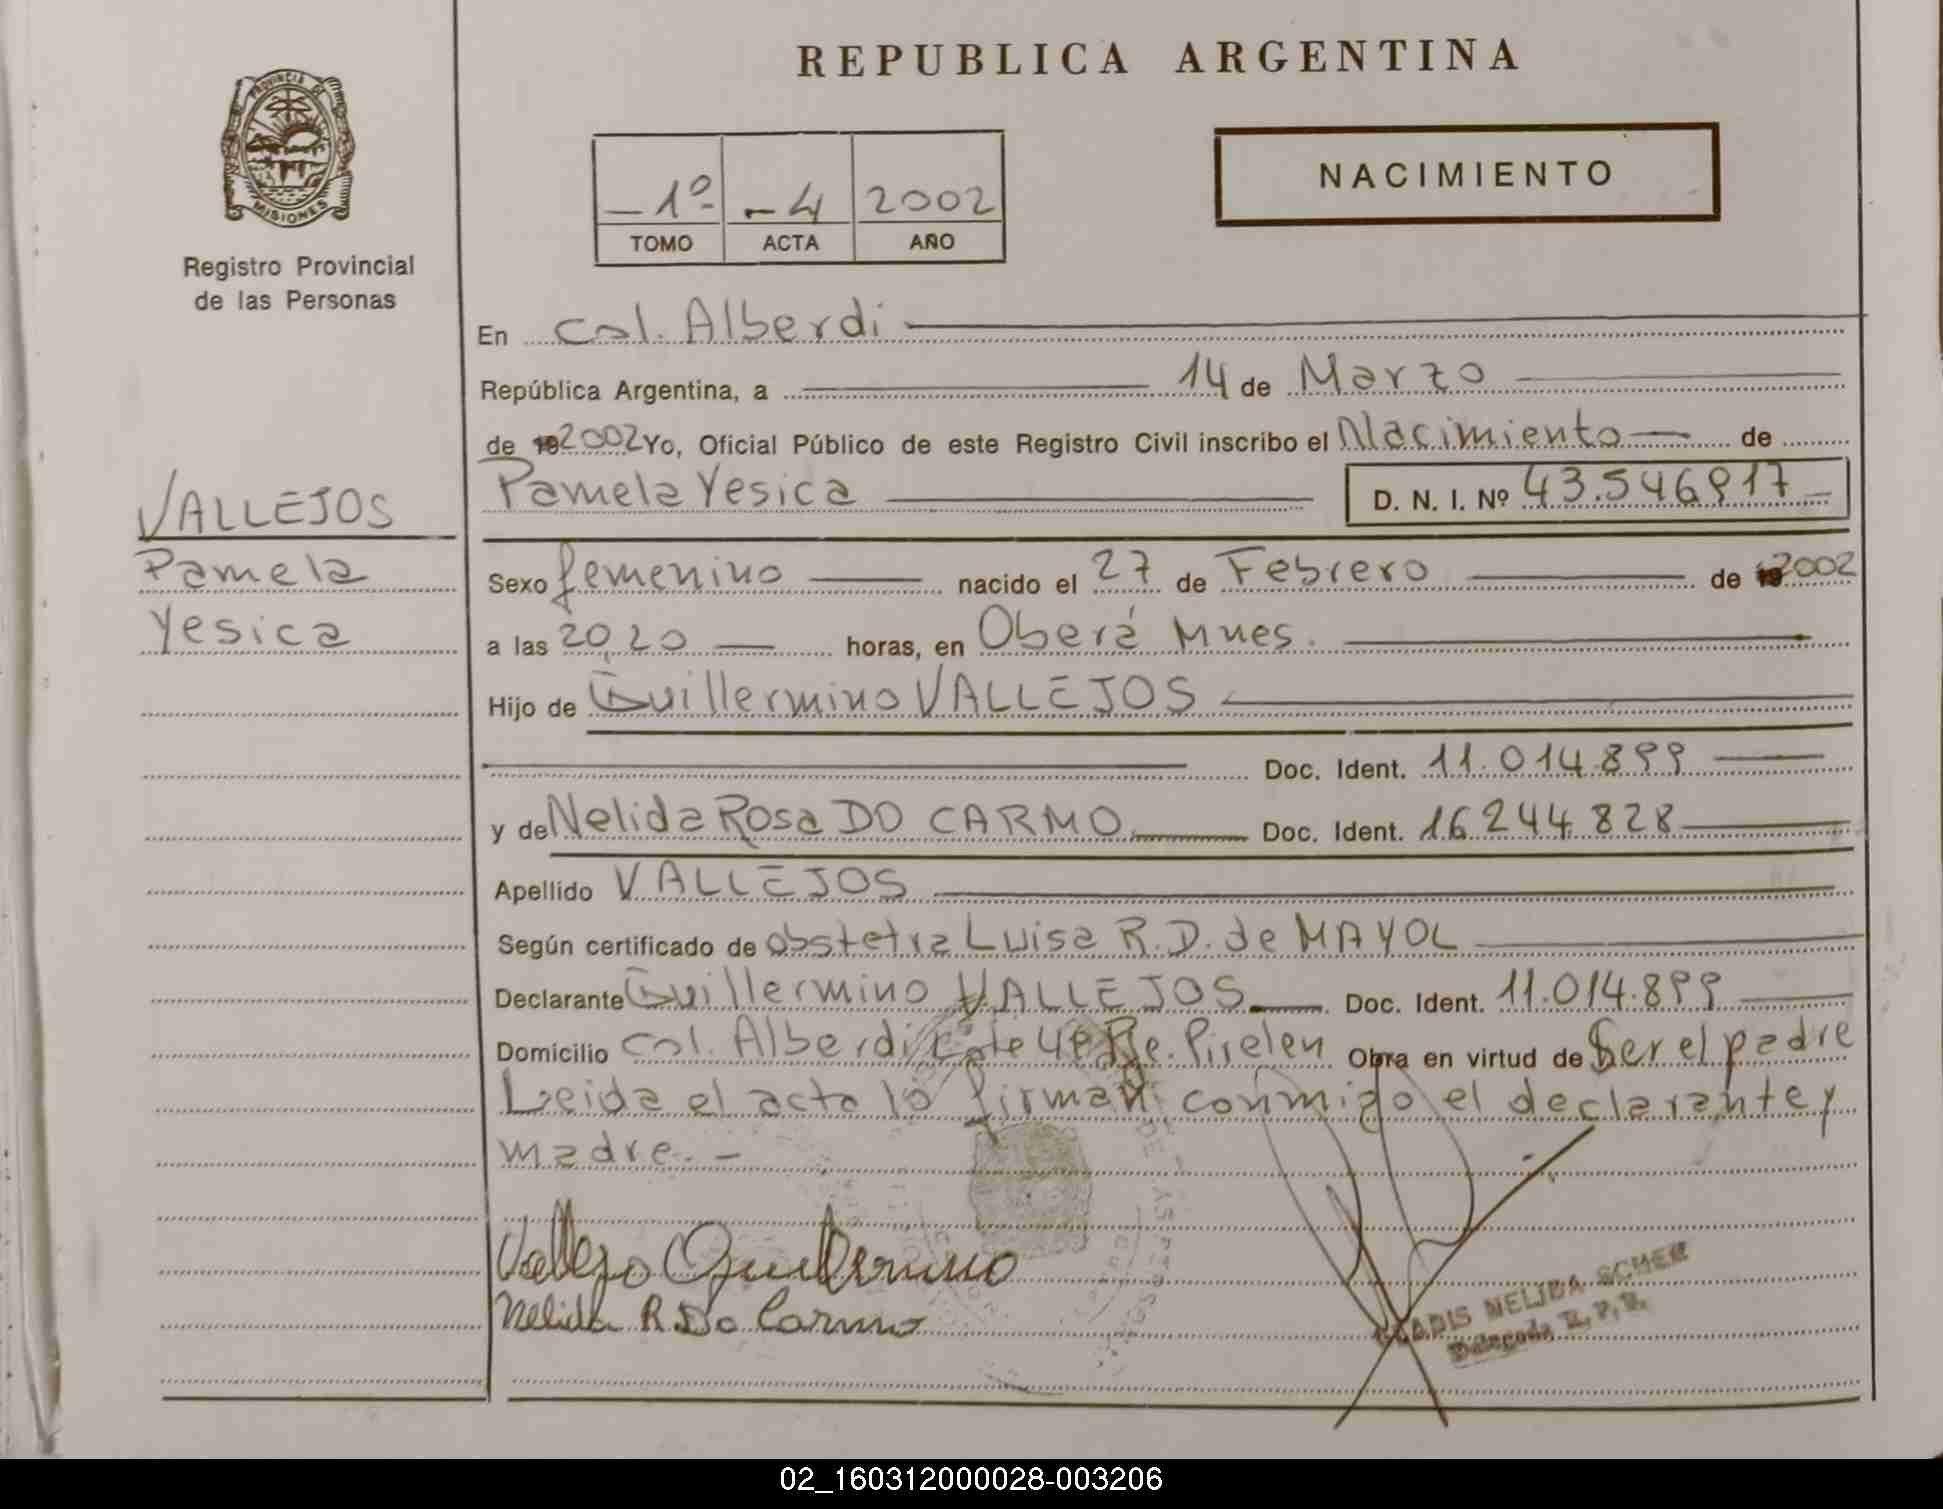 PROVINCIA DE
MISIONES
Registro Provincial
de las Personas
VALLEJOS
Pamela
Yesica
REPUBLICA ARGENTINA
1º - 4 2002
TOMO ACTA AÑO
NACIMIENTO
En Col. Alberdi
República Argentina, a 14 de Marzo
de 2002 Yo, Oficial Público de este Registro Civil inscribo el Nacimiento de
Pamela Yesica D. N. I. Nº 43.546917
Sexo femenino nacido el 27 de Febrero de 2002
a las 20,20 horas, en Oberá Mnes.
Hijo de Guillermino VALLEJOS
Doc. Ident. 11.014.899
y de Nelida Rosa DO CARMO Doc. Ident. 16244828
Apellido VALLEJOS
Según certificado de obstetra Luisa R. D. de MAYOL
Declarante Guillermino VALLEJOS Doc. Ident. 11.014.899
Domicilio Col. Alberdi Obra en virtud de ser el padre
Leida el acta la firman conmigo el declarante y
madre.-
Vallejo Guillermino
Nelida R. Do Carmo
NELIDA
02_160312000028-003206